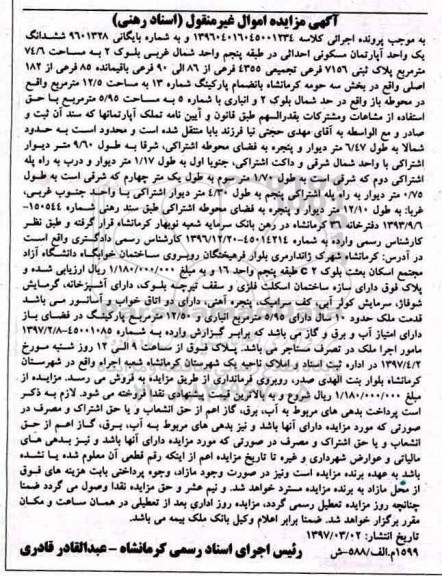 آگهی مزایده اموال غیرمنقول (اسناد رهنی)
به موجب پرونده اجرائی کلاسه ۱۳۹۶۰۴۰۱۶۰۴۵۰۰۰۱۲۳۴ و به شماره بایگانی ۹۶۰۱۳۲۸ ششدانگ
یک واحد آپارتمان مسکونی احداثی در طبقه پنجم واحد شمال غربی بلوک ۲ به مساحت ۷۴/۶
مترمربع پلاک ثبتی ۷۱۵۶ فرعی تجمیعی ۴۳۵۵ فرعی از ۸۶ الی ۹۰ فرعی باقیمانده ۸۵ فرعی از ۱۸۲
اصلی واقع در بخش سه حومه کرمانشاه بانضمام پارکینگ شماره ۱۳ به مساحت ۱۲/۵ مترمربع واقع
در محوطه باز واقع در حد شمال بلوک ۲ و انباری با شماره ۵ به مساحت ۵/۹۵ مترمربع با حق
استفاده از مشاعات ومشترکات بقدرالسهم طبق قانون و آیین نامه تملک آپارتمانها که سند آن ثبت و
صادر و مع الواسطه به آقای مهدی حجتی نیا فرزند بابا منتقل شده است و محدود است به حدود
شمالا به طول ۶/۴۷ متر دیوار و پنجره به فضای محوطه اشتراکی، شرقا به طول ۹/۶۰ متر دیوار
اشتراکی با واحد شمال شرقی و داکت اشتراکی، جنوبا اول به طول ۱/۱۷ متر دیوار و درب به راه پله
اشتراکی دوم که شرقی است به طول ۱/۷۰ متر سوم به طول یک متر چهارم که شرقی است به طول
۰/۷۵ متر دیوار به راه پله اشتراکی پنجم به طول ۴/۳۰ متر دیوار اشتراکی با واحد جنوب غربی،
غربا: به طول ۱۲/۱۰ متر دیوار و پنجره به فضای محوطه اشتراکی طبق سند رهنی شماره ۱۵۰۵۴۴-
۱۳۹۳/۹/۶ دفترخانه ۳۶ کرمانشاه در رهن بانک سرمایه شعبه نوبهار کرمانشاه قرار گرفته و طبق نظر
کارشناس رسمی وارده به شماره ۴۵۰۱۴۲۱۴-۱۳۹۶/۱۲/۲۰ کارشناس رسمی دادگستری واقع است
در آدرس: کرمانشاه شهرک ژاندارمری بلوار فرهیختگان روبروی ساختمان خوابگاه دانشگاه آزاد
مجتمع اسکان بعثت بلوک C ۲ طبقه پنجم واحد ۱۶ و به مبلغ ۱/۱۸۰/۰۰۰/۰۰۰ ریال ارزیابی شده و
پلاک فوق دارای سازه ساختمان اسکلت فلزی و سقف تیرچه بلوک، دارای آشپزخانه، گرمایش
شوفاژ، سرمایش کولر آبی، کف سرامیک، پنجره آهنی، دارای دو اتاق خواب و آسانسور می باشد
قدمت ملک حدود ۱۰ سال دارای ۵/۹۵ مترمربع انباری و ۱۲/۵۰ مترمربع پارکینگ در فضای باز
دارای امتیاز آب و برق و گاز می باشد که برابر گزارش وارده به شماره ۴۵۰۰۱۰۸۵-۱۳۹۷/۲/۸
مامور اجرا ملک در تصرف مستاجر می باشد. پلاک فوق از ساعت ۹ الی ۱۲ روز شنبه مورخ
۱۳۹۷/۴/۲ در اداره ثبت اسناد و املاک ناحیه یک شهرستان کرمانشاه شعبه اجراء واقع در شهرستان
کرمانشاه بلوار بنت الهدی صدر، روبروی فرمانداری از طریق مزایده به فروش می رسد. مزایده از
مبلغ ۱/۱۸۰/۰۰۰/۰۰۰ ریال شروع و به بالاترین قیمت پیشنهادی نقدا فروخته می شود. لازم به ذکر
است پرداخت بدهی های مربوط به آب، برق، گاز اعم از حق انشعاب و یا حق اشتراک و مصرف در
صورتی که مورد مزایده دارای آنها باشد و نیز بدهی های مربوط به آب، برق، گاز اعم از حق
انشعاب و یا حق اشتراک و مصرف در صورتی که مورد مزایده دارای آنها باشد و نیز بدهی های
مالیاتی و عوارض شهرداری و غیره تا تاریخ مزایده اعم از اینکه رقم قطعی آن معلوم شده یا نشده
باشد به عهده برنده مزایده است ونیز در صورت وجود مازاد، وجوه پرداختی بابت هزینه های فوق
از محل مازاد به برنده مزایده مسترد خواهد شد. و نیم عشر و حق مزایده نقدا وصول می گردد ضمنا
چنانچه روز مزایده تعطیل رسمی گردد، مزایده روز اداری بعد از تعطیلی در همان ساعت و مکان
مقرر برگزار خواهد شد. ضمنا برابر اعلام وکیل بانک ملک بیمه می باشد.
تاریخ انتشار: ۱۳۹۷/۰۳/۰۲
۱۵۹۹م.الف/۵۸۸-ش رئیس اجرای اسناد رسمی کرمانشاه - عبدالقادر قادری